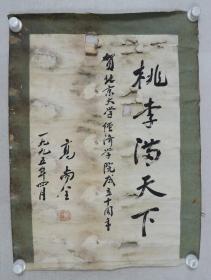 桃李满天下
贺北京大学经济学院成立十周年
高尚全
一九九五年四月